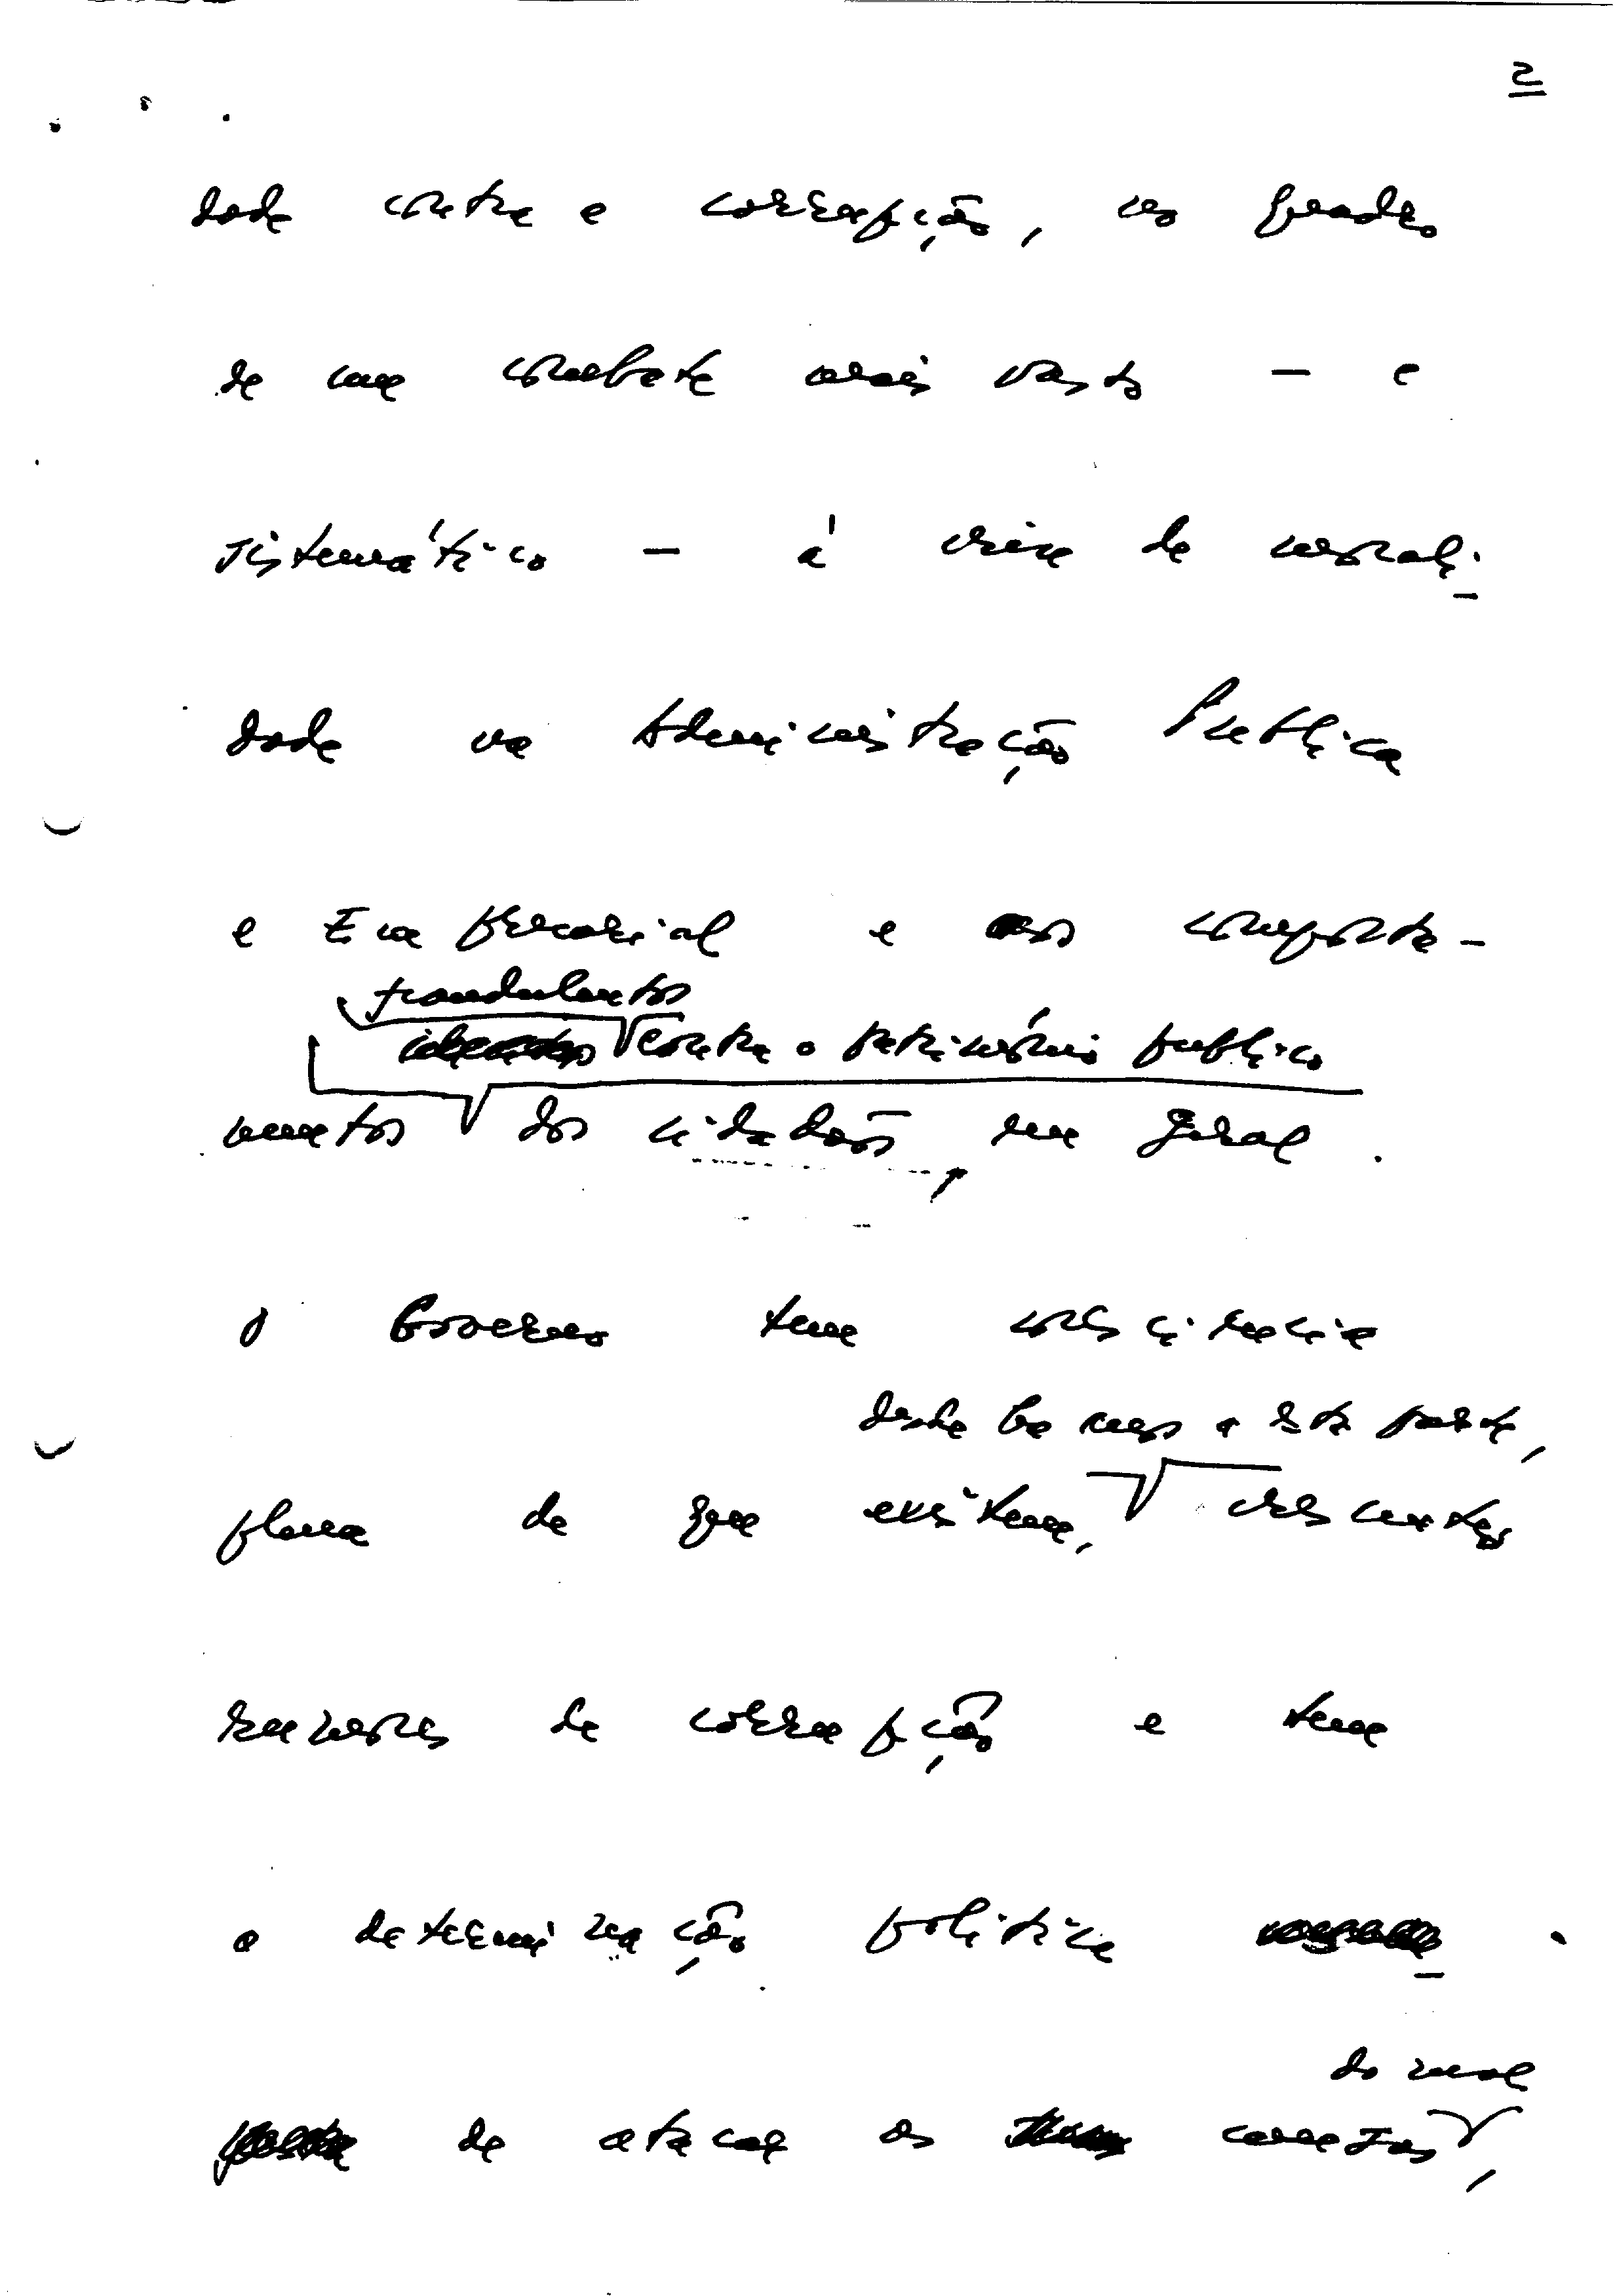 2
dade contra a corrupção, no quadro
de um combate mais vasto – e
sistemático – à crise de morali-
dade na Administração Pública
e Empresarial e aos comporta-
fraudulentos
contra o património publico
mentos dos cidadãos, em geral.
O Governo tem consciência
desde há muito a esta parte,
plena de que existem, crescentes
fenómenos de corrupção e tem
a determinação política
do mal
de atacar as causas,